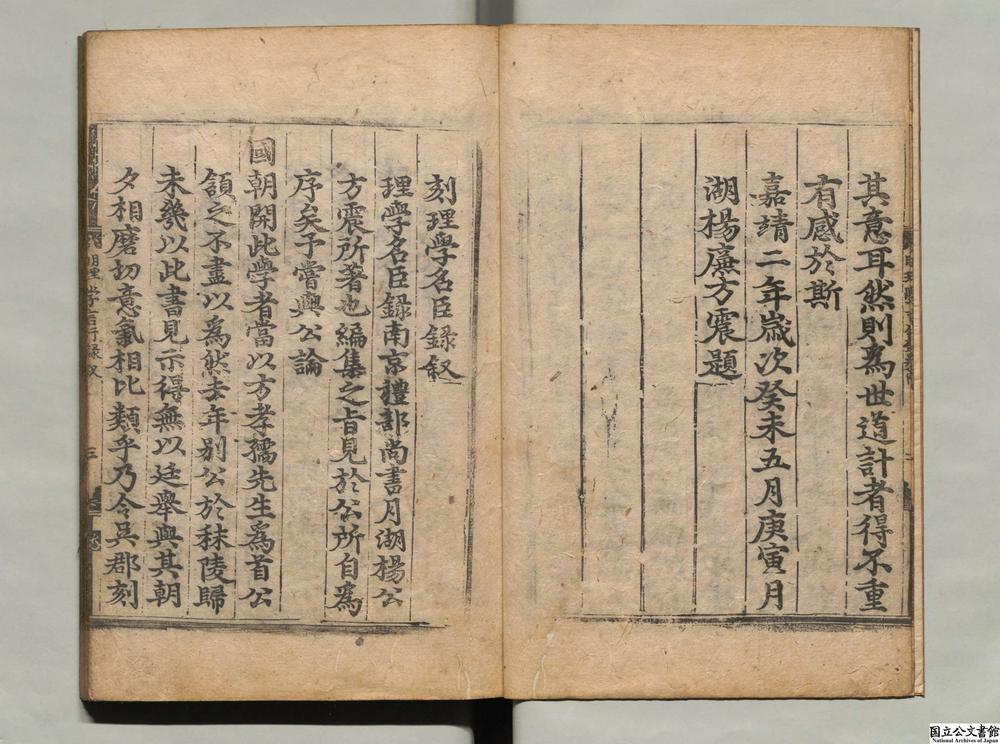 其意耳然則為世道計者得不重
有感於斯
嘉靖二年歲次癸未五月庚寅月
湖楊廉方震題
刻理學名臣録叙
理學名臣録南京禮部尚書月湖楊公
方震所著也編集之旨見於公所自為
序矣予嘗與公論
國朝開此學者當以方孝孺先生為首公
頷之不盡以為然去年別公於秣陵歸
未幾以此書見示得無以廷舉與其朝
夕相磨切意氣相比類乎乃令吳郡刻
國立公文書館
National Archives of Japan